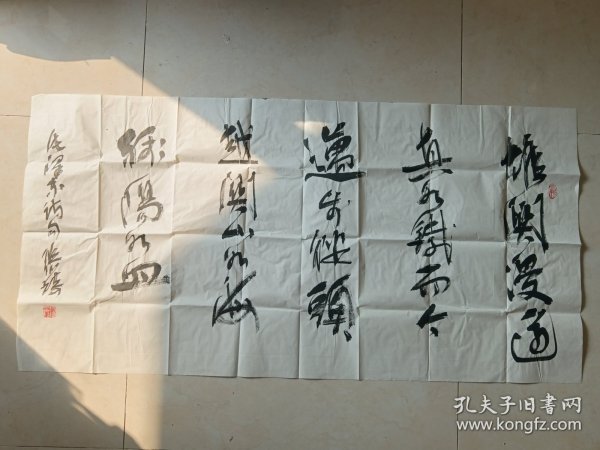 雄關漫道
真如鐵而今
邁步從頭
越關山如海
殘陽如血
毛澤東詩句
孔夫子旧书网
www.kongfz.com